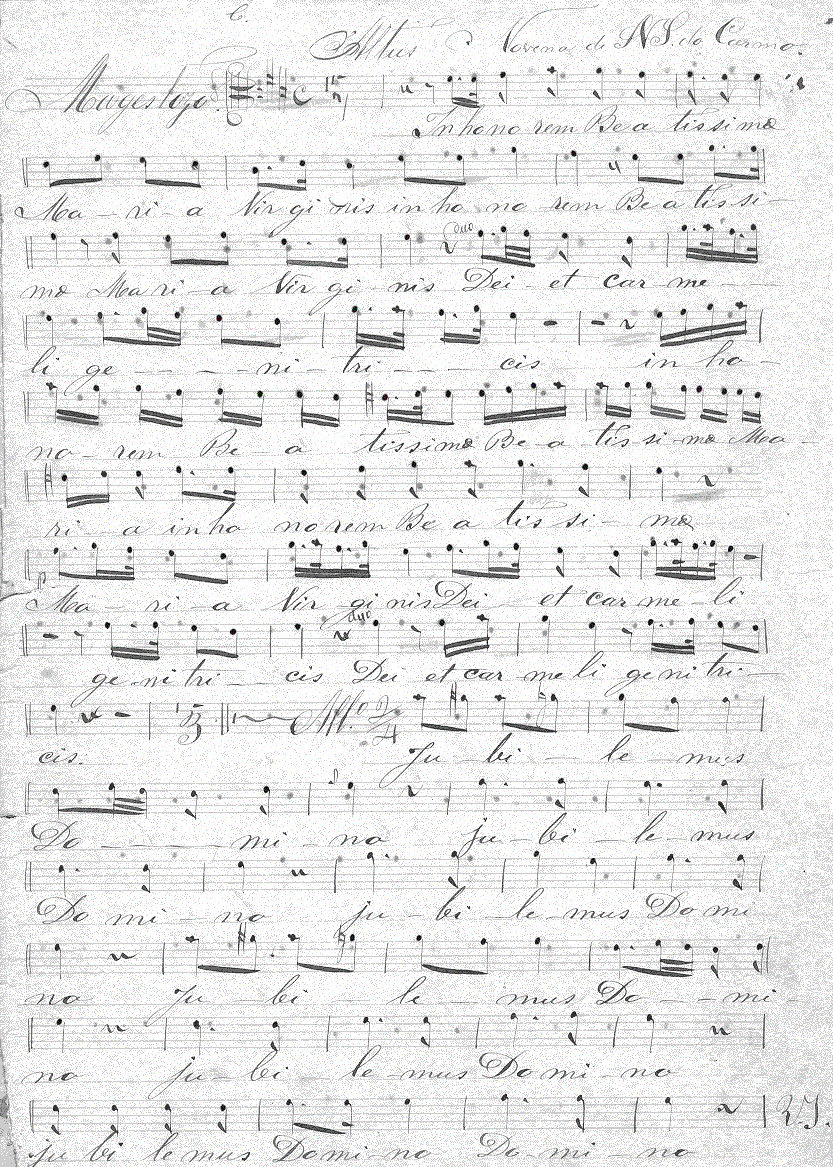 Altus Novena de N S. do Carmo.
Magestozo.
In hono rem Be a tissimæ
Ma - ri - a Vir gi nis in ho no rem Be a tis si -
mæ Ma ri - a Vir gi - nis Dei - et car me - -
duo
li ge - - - - ni - tri - - - cis in ho -
no - rem Be - a tissimæ Be - a - tis si - mæ Ma -
ri - a in ho no rem Be a tis si - mæ
Ma - ri - a Vir gi nis Dei et car me - li
duo
ge - ni tri - cis Dei et car me li ge ni tri -
All.º 2/4
cis. Ju - bi - le - mus
Do - - - - mi - no ju - bi - le - mus
Do mi - no ju - bi - le - mus Do mi
no Ju - bi - le - mus Do - - mi -
no ju - bi - le - mus Do mi - no
ju bi le mus Do mi - no Do - mi - no